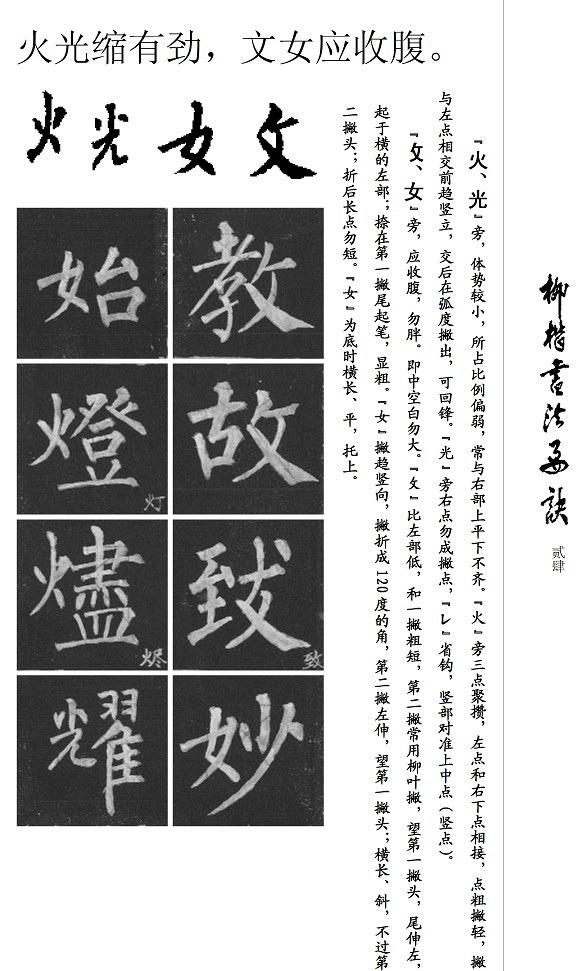 火光缩有劲，文女应收腹。
火 光 女 攵
『火、光』旁，体势较小，所占比例偏弱，常与右部上平下不齐。『火』旁三点聚攒，左点和右下点相接，点粗撇轻，撇
与左点相交前趋竖立，交后在弧度撇出，可回锋。『光』旁右点勿成撇点，『乚』省钩，竖部对准上中点（竖点）。
『攵、女』旁，应收腹，勿胖。即中空白勿大。『攵』比左部低，和一撇粗短，第二撇常用柳叶撇，望第一撇头，尾伸左，
起于横的左部；捺在第一撇尾起笔，显粗。『女』撇趋竖向，撇折成120度的角，第二撇左伸，望第一撇头；横长、斜，不过第
二撇头；折后长点勿短。『女』为底时横长、平，托上。
始 教
燈 故
灯
燼 致
烬 致
耀 妙
柳楷书法要诀
贰肆